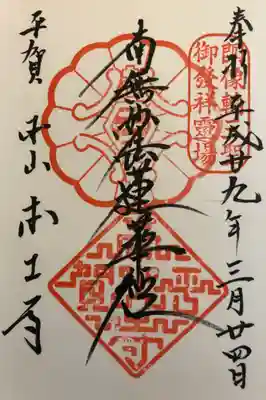 奉拝 平成廿九年三月廿四日
朗像輪聖
御發祥霊場
南無妙法蓮華経
平賀 本山 本土寺